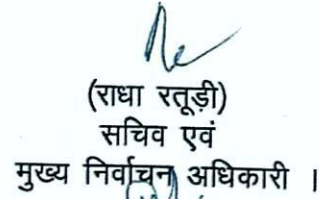 (राधा रतूड़ी)
सचिव एवं
मुख्य निर्वाचन अधिकारी ।